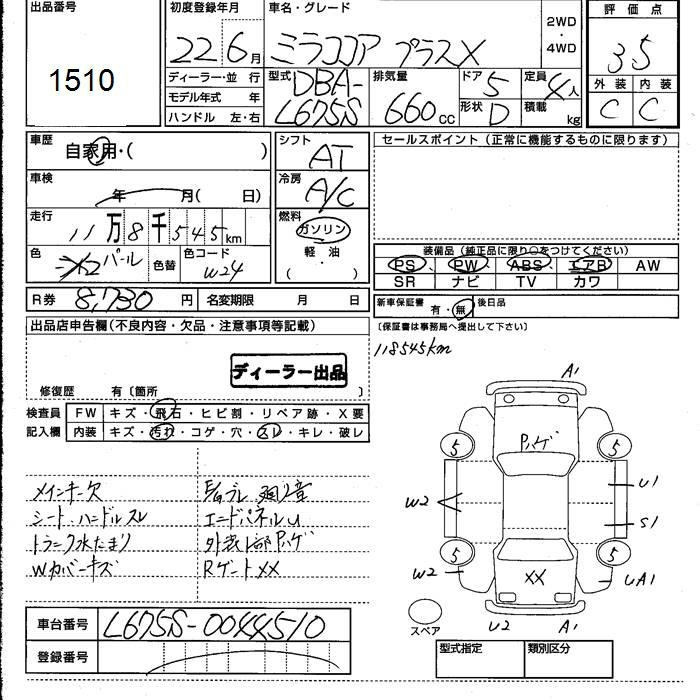 出品番号
1510
初度登録年月
22年6月
車名・グレード
ミラココア プラスX
2WD
・
4WD
評価点
3.5
外装 内装
C C
ディーラー・並 行
モデル年式 年
ハンドル 左・右
型式
DBA-
L675S
排気量
660cc
ドア
5
形状
D
定員
4人
積載
kg
車歴
自家用・( )
車検
年 月( 日)
走行
11万8千545km
色
パール
色替
色コード
W24
シフト
AT
冷房
A/C
燃料
ガソリン
軽 油
( )
セールスポイント (正常に機能するものに限ります)
装備品 (純正品に限り○をつけてください)
PS PW ABS エアB AW
SR ナビ TV カワ
R券 8,730円 名変期限 月 日
新車保証書 有・無 後日品
〔保証書は事務局へ提出して下さい〕
出品店申告欄(不良内容・欠品・注意事項等記載)
118545km
ディーラー出品
修復歴 有〔箇所 〕
検査員
記入欄
FW キズ・飛石・ヒビ割・リペア跡・X要
内装 キズ・汚れ・コゲ・穴・スレ・キレ・破レ
メインキー欠
シート、ハンドルスレ
トランク水たまり
Wカバーキズ
エンドパネルU
外装上部Pハゲ
Rゲート XX
A1
5 Pハゲ 5
W2 U1
S1
5 5
W2 XX UA1
U2 A1
スペア
車台番号 L675S-0044510
登録番号
型式指定 類別区分